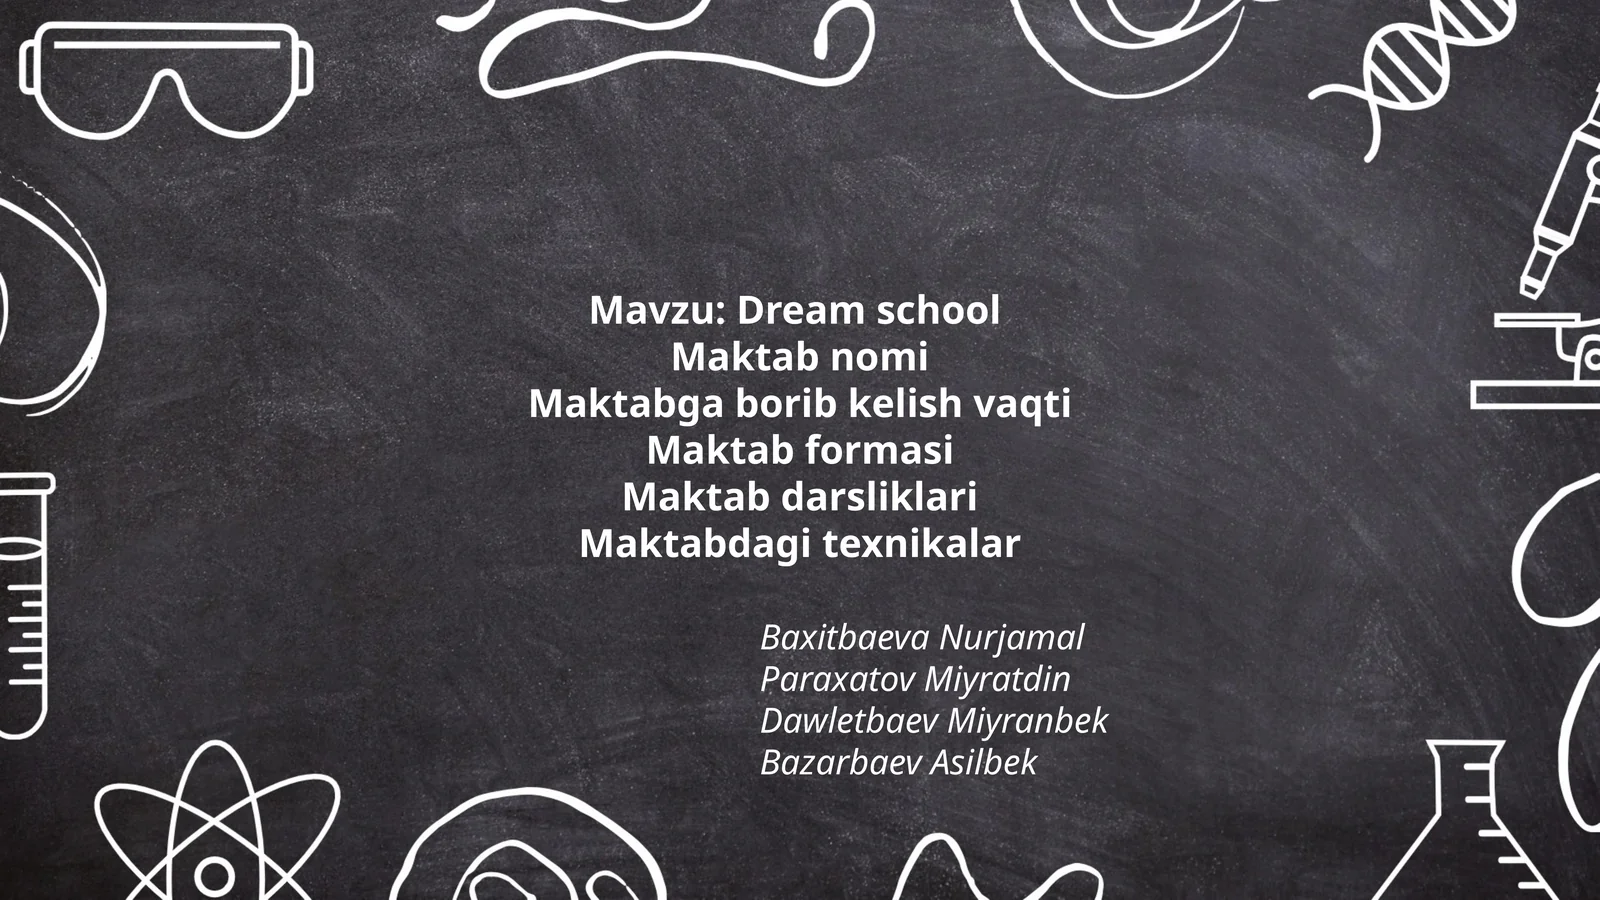 Mavzu: Dream school
Maktab nomi
Maktabga borib kelish vaqti
Maktab formasi
Maktab darsliklari
Maktabdagi texnikalar
Baxitbaeva Nurjamal
Paraxatov Miyratdin
Dawletbaev Miyranbek
Bazarbaev Asilbek